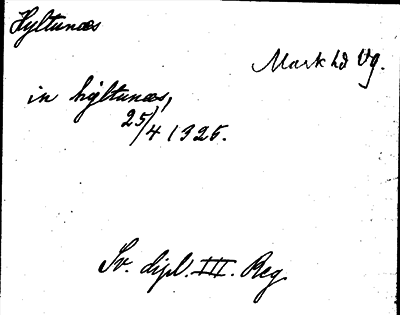 Hyltunæs
Mark hd Vg.
in hyltunæs,
25/4 1325.
Sv. dipl. III. Reg.